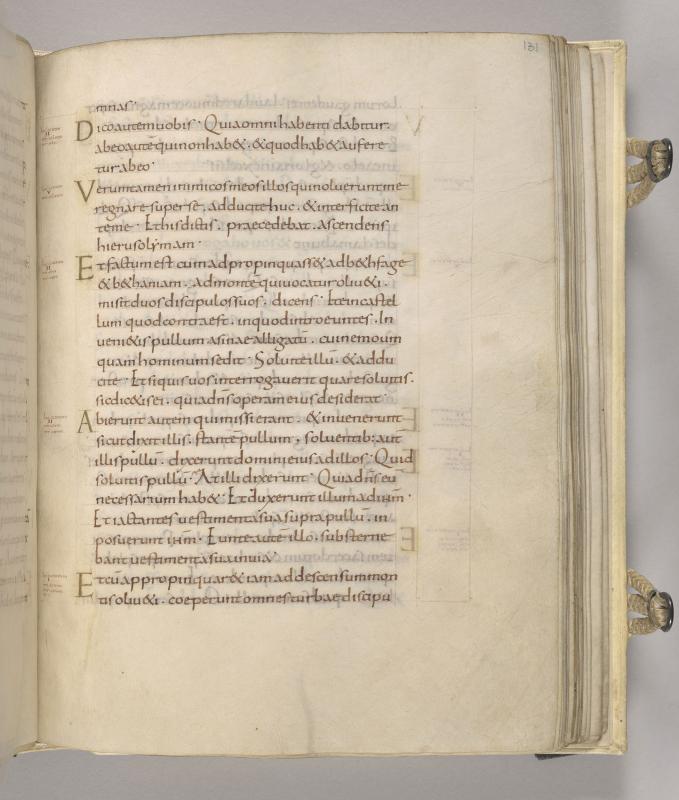 131
mnas·
Dico autem uobis· Quia omni habenti dabitur·
ab eo autē qui non hab&· & quod hab& aufere
tur ab eo·
Veruntamen inimicos meos illos qui noluerunt me
regnare super se· adducite huc· & interficite an
te me· Et his dictis· praecedebat· ascendens
hierusolymam·
Et factum est cum adpropinquass& ad b&hfage
& b&haniam· ad montē qui uocatur oliu&i·
misit duos discipulos suos· dicens· Ite in castel
lum quod contra est· in quod introeuntes· In
ueni&is pullum asinae alligatū· cui nemo um
quam hominum sedit· Soluite illū· & addu
cite· Et si quis uos interrogauerit quare soluitis·
sic dic&is ei· quia dn̄s operam eius desiderat·
Abierunt autem qui missi erant· & inuenerunt
sicut dixit illis· stantē pullum· soluentib; aut̄
illis pullū· dixerunt domini eius ad illos· Quid
soluitis pullū· At illi dixerunt· Quia dn̄s eū
necessarium hab&· Et duxerunt illum ad ihm̄·
Et iactantes uestimenta sua supra pullū· in
posuerunt ihm̄· Eunte autē illo· substerne
bant uestimenta sua in uia·
Et cū appropinquar& iam ad descensum mon
tis oliu&i· coeperunt omnes turbae discipu